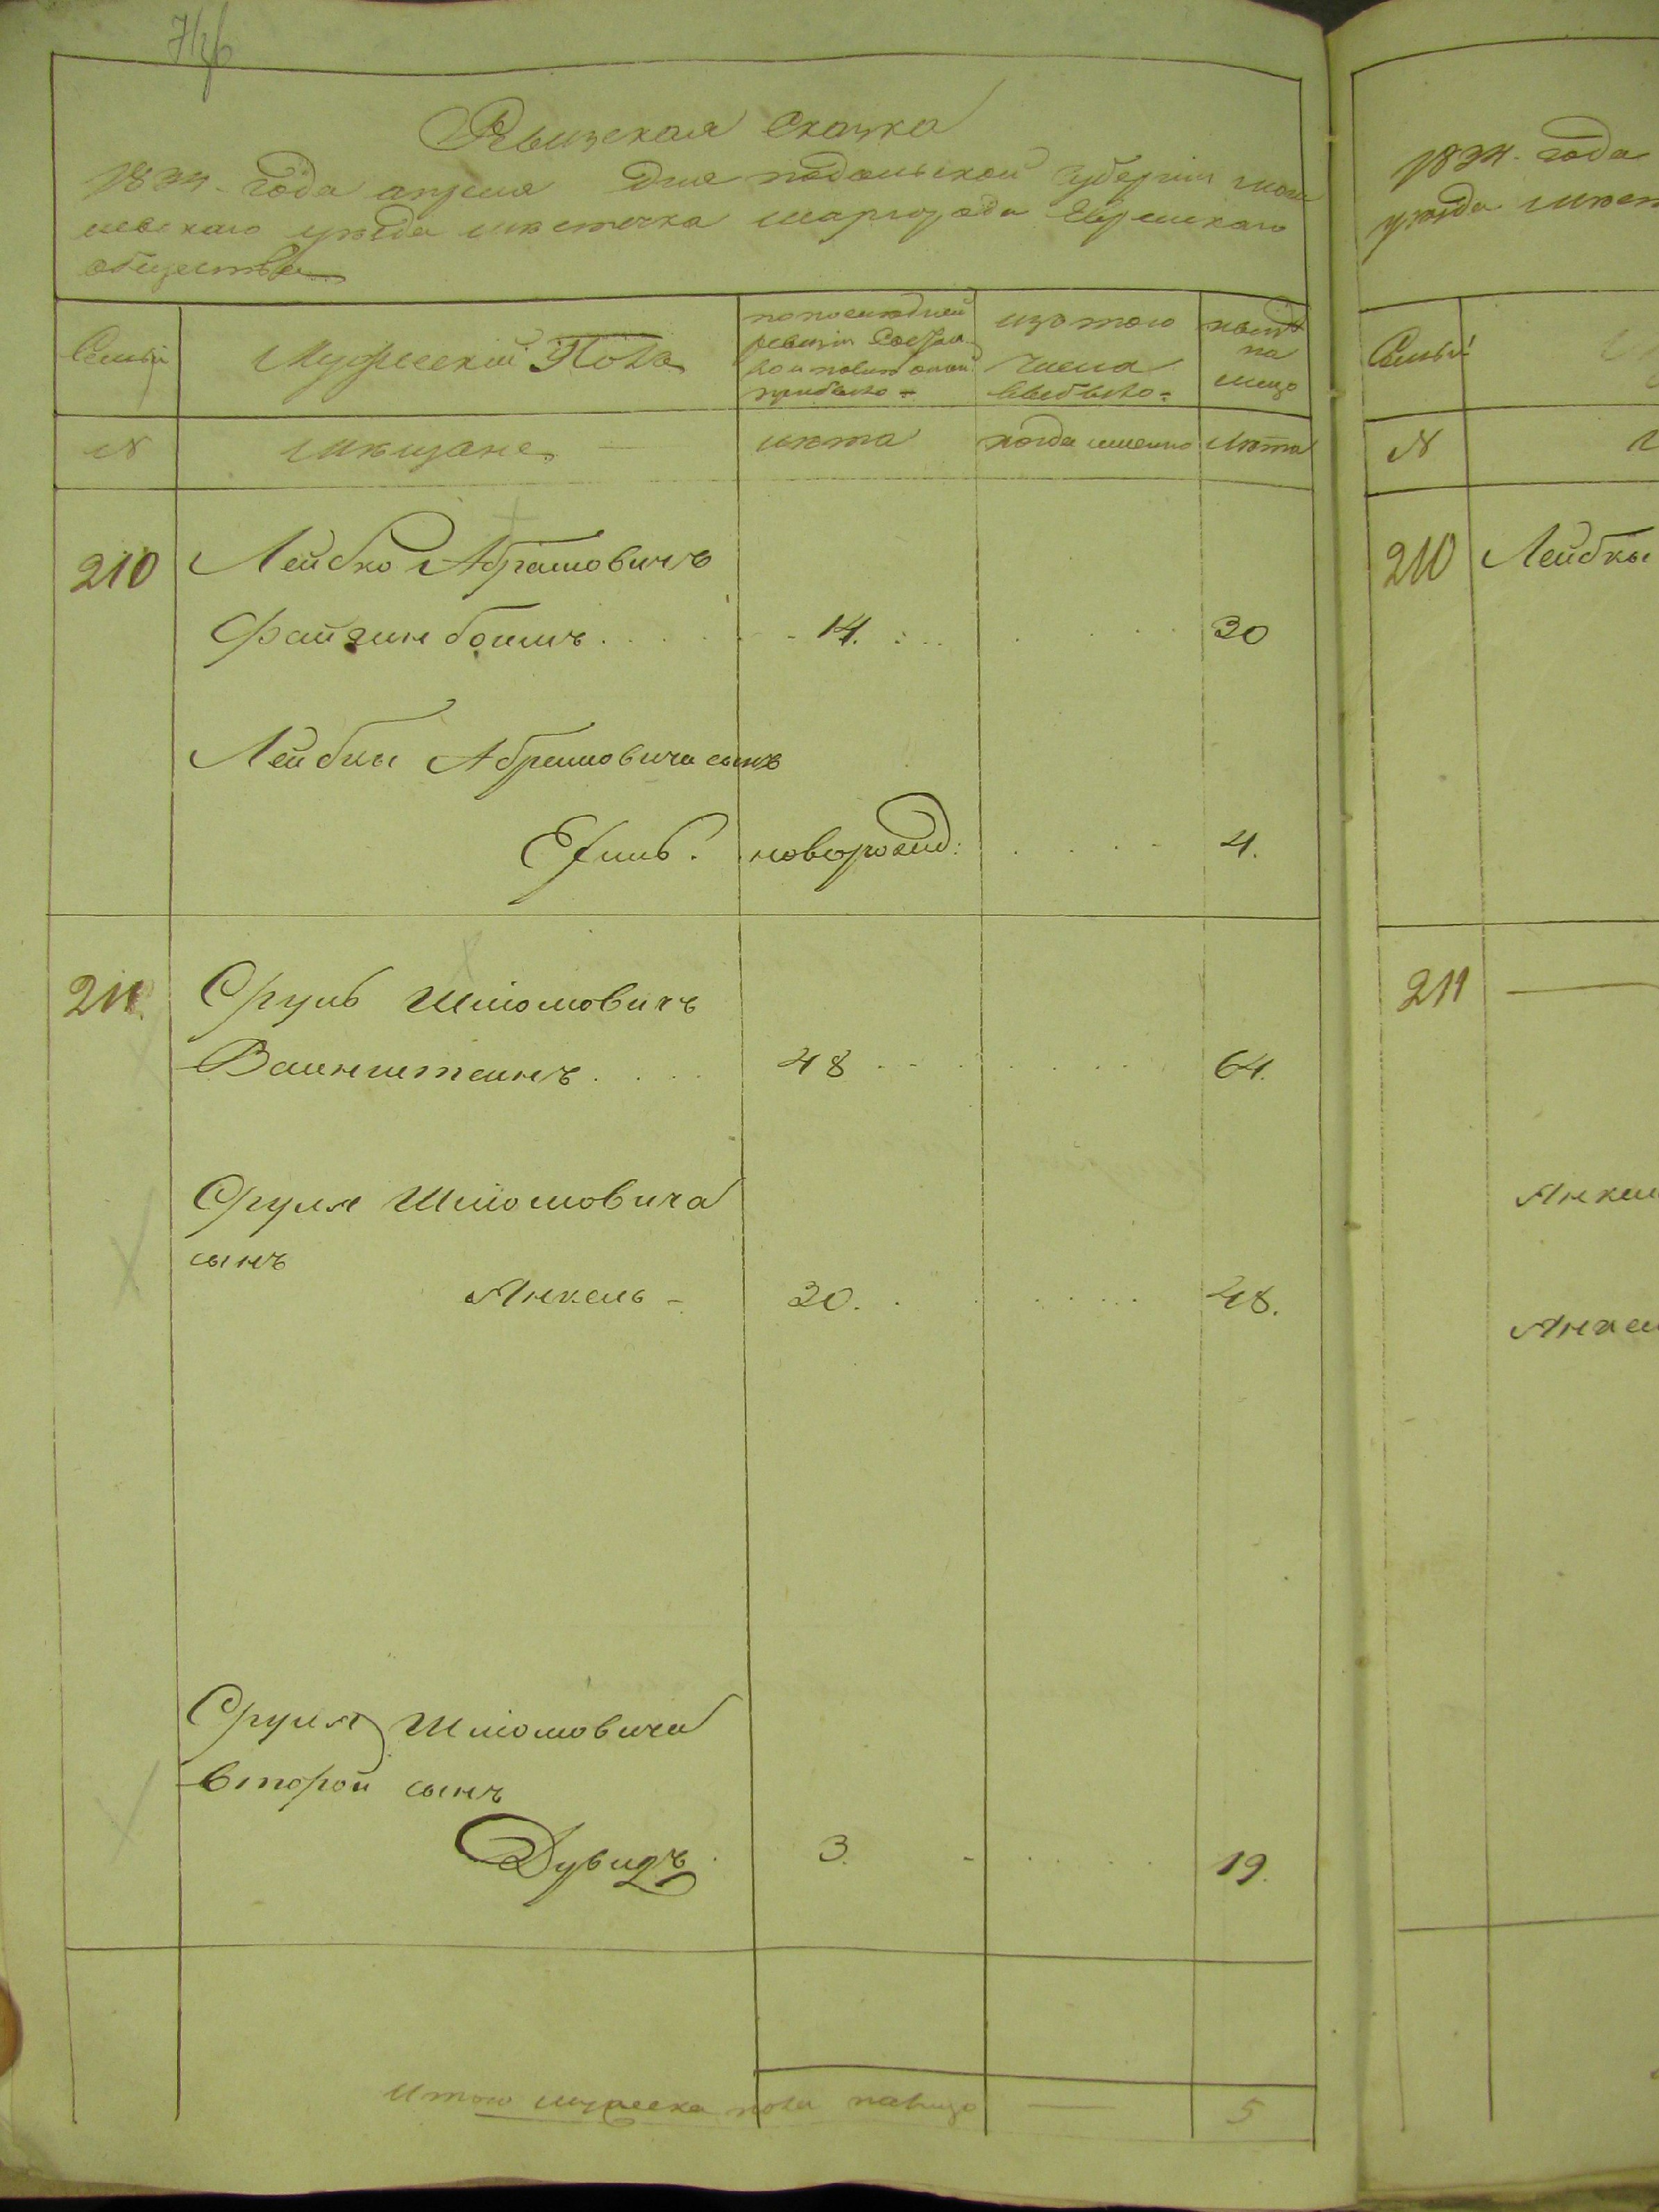 Ревизская Сказка
1834 года апреля дня подольской губернии моги
левского уѣзда мѣстечка шаргорода Еврейскаго
общества
Семьи
Мужескій Полъ
по последней
ревизіи Состоя
ло и после оной
прибыло
изъ того
числа
выбыло
нынѣ
на
лицо
N
мѣщане
лѣта
когда именно
Лѣта
210
Лейбко Абрамовичъ
Файгинбоимъ
14.
30
Лейбки Абрамовича сынъ
новорожд:
4.
211.
Сруль Шліомовичъ
Ваинштеинъ
48
64.
Сруля Шліомовича
сынъ
Янкель
30.
48.
Сруля Шліомовича
второй сынъ
Дувидъ
3.
19.
Итого мужеска пола налицо
5
1834 года
уѣзда мѣст
Семьи
N
210
Лейбки
211
Янкел
Янкел